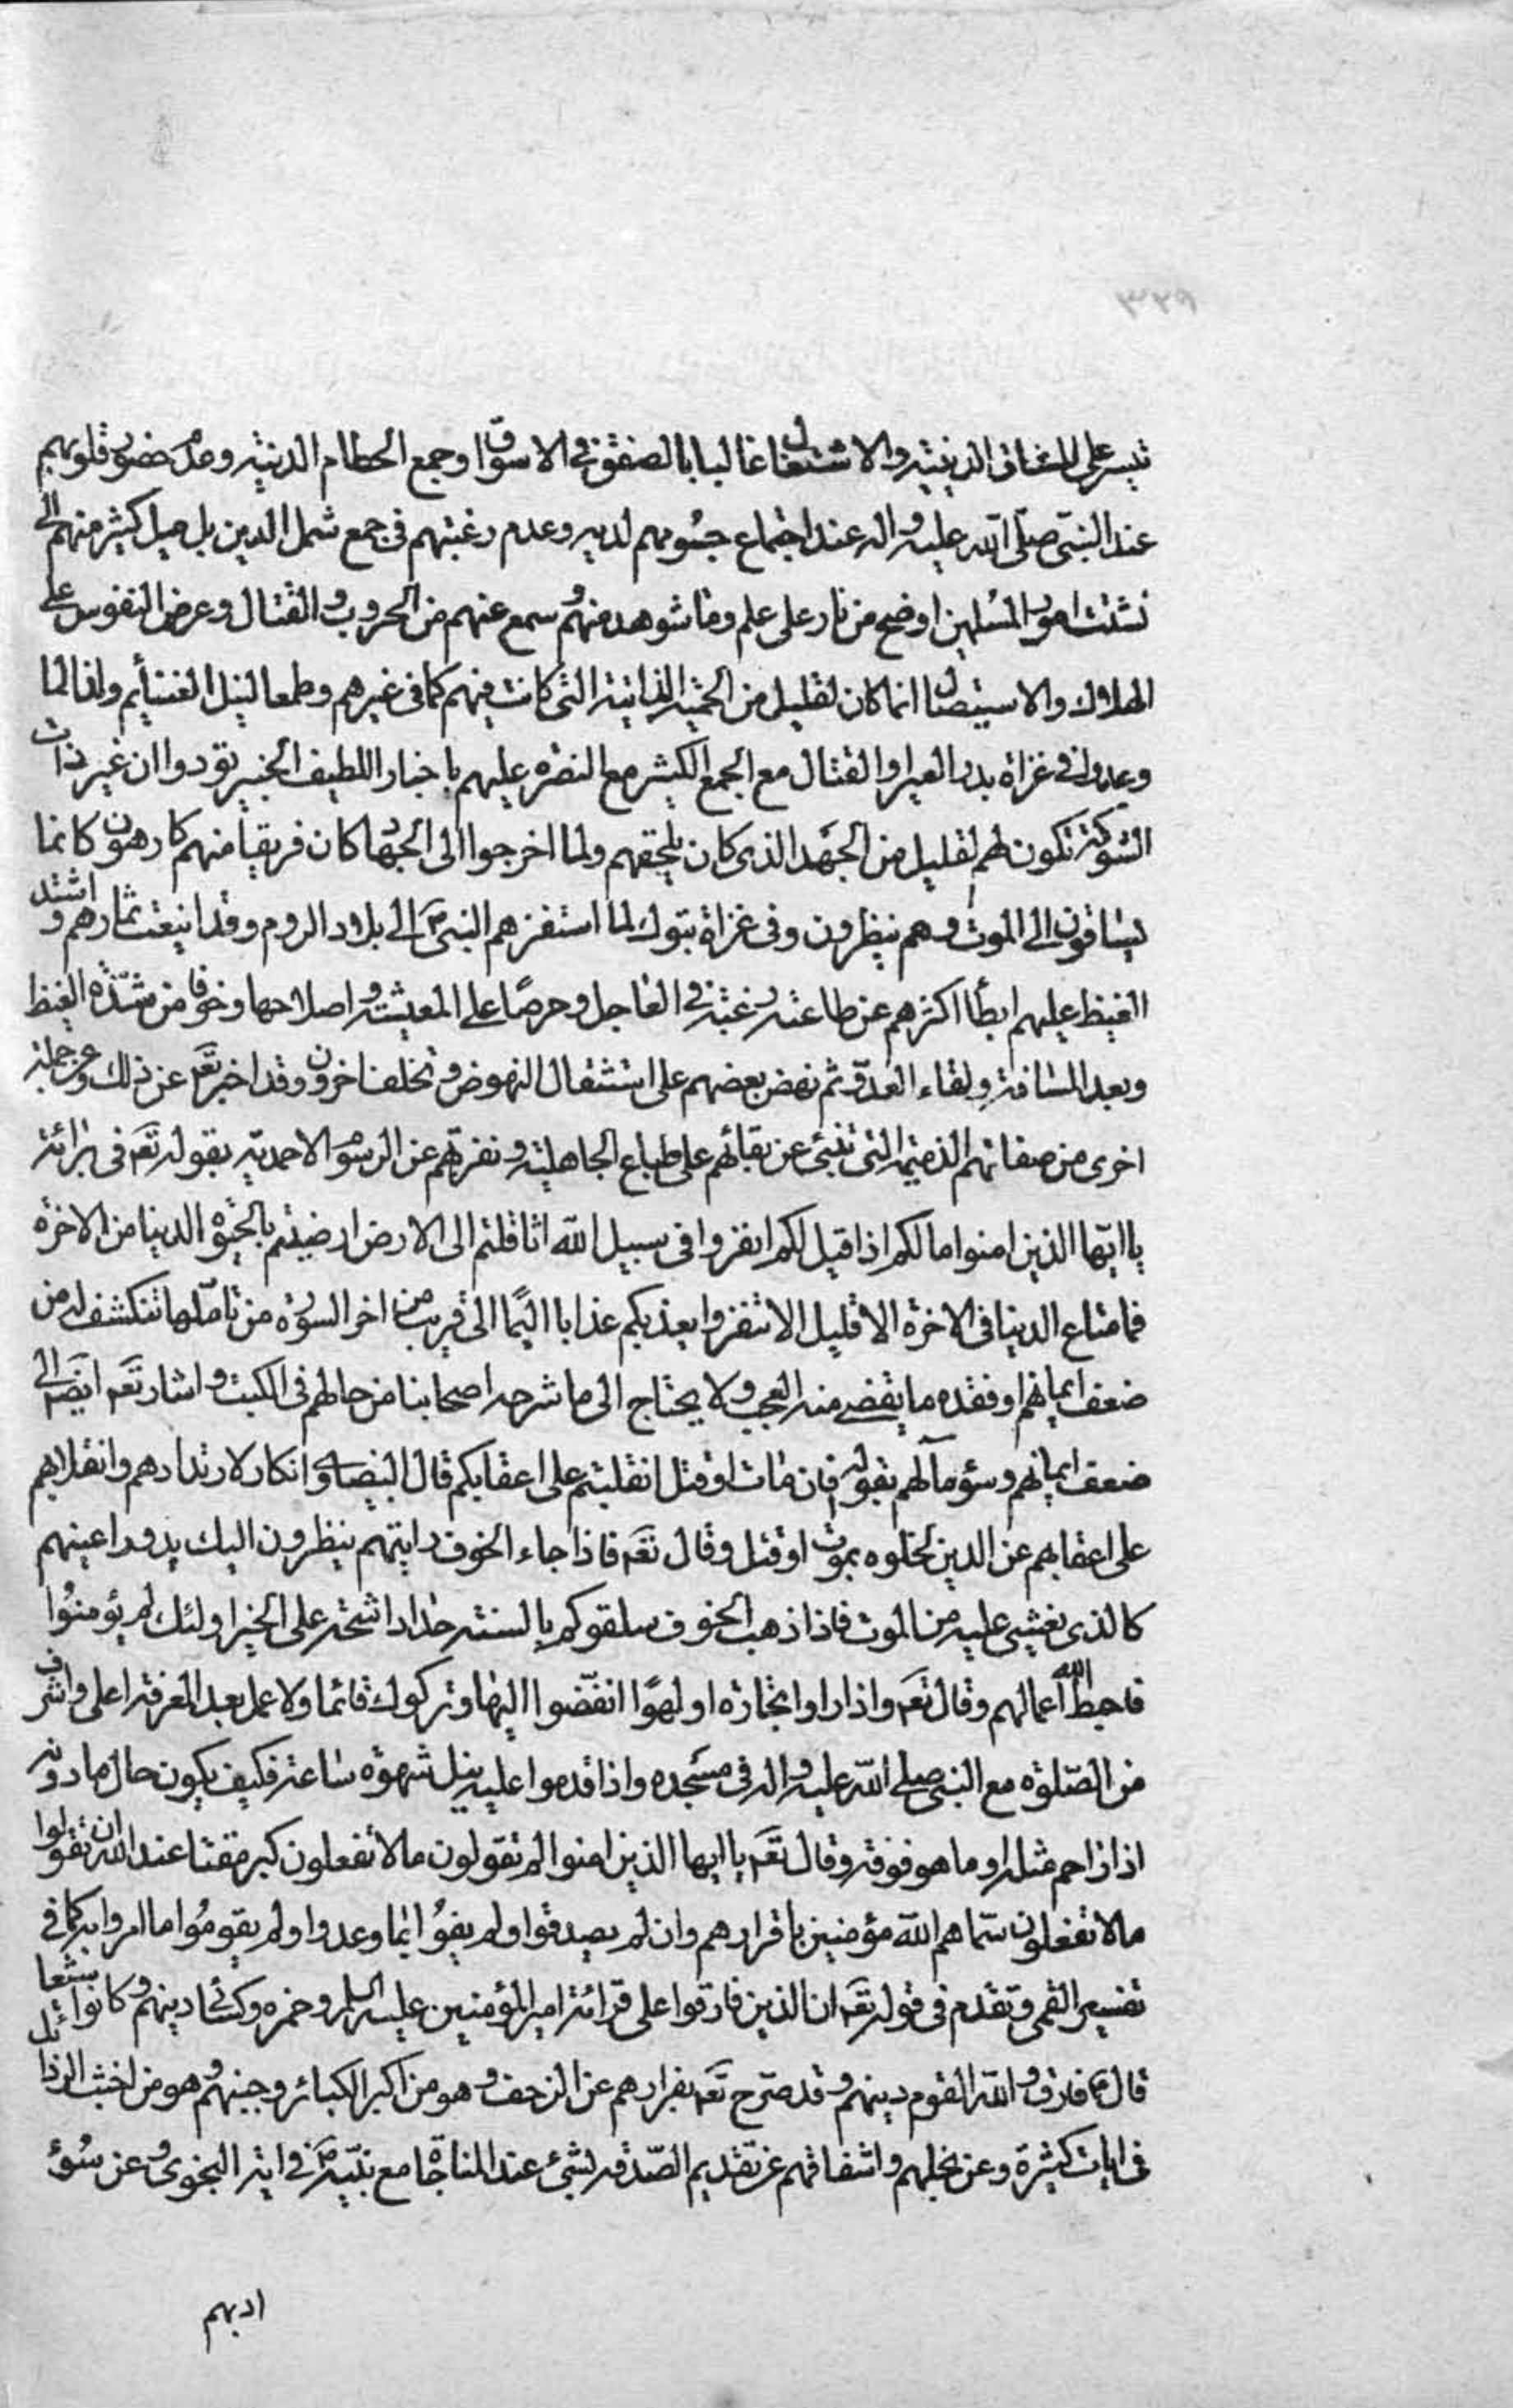 تيسر على المعانى الدينيّة والاشتغال غالبا بالصفق فى الاسواق وجمع الحطام الدنيّة وعدم حضور قلوبهم
عند النبىّ صلّى اللّه عليه واله عند اجتماع جسُومهم لديه وعدم رغبتهم فى جمع شمل الدين بل ميل كثير منهم الى
تشتت امور المسُلمين اوضح من نار على علم وما شوهد منهم وسمع عنهم من الحروب والقتال وعرض النفوس على
الهلاك والاستيصال انما كان لقليل من الحميّة الذاتية التى كانت فيهم كما فى غيرهم وطمعا لنيل الغنايم ولذا لما
وعدوا فى غزاة بدر العير او القتال مع الجمع الكثير مع النصره عليهم باخبار اللطيف الخبير تودوا ان غير ذات
الشوكة تكون لهم لقليل من الجَهد الذى كان يلحقهم ولما اخرجوا الى الجهاد كان فريقا منهم كارهون كانما
يسٰاقون الى الموت وهم ينظرون وفى غزاة تبوك لما استفزهم النبىّ ص الى بلاد الروم وقد اينعت ثمارهم و اشتد
القيظ عليهم ابطأ اكثرهم عن طاعته رغبة فى العاجل وحرصًا على المعيشة واصلاحها وخوفا من شدّة القيظ
وبعد المسٰافة ولقاء العدوّ ثم نهض بعضهم على استثقال النهوض وتخلف اخرون وقد اخبر تعَه عن ذلك وعن جملة
اخرى من صفاتهم الذميمة التى تنبئ عن بقائهم على طباع الجاهلية ونفرتهم عن الرسُوم الاحمديّة بقوله تعَه فى برٰائة
يا ايّها الذين امنوا ما لكم اذا قيل لكم انفروا فى سبيل اللّه اثاقلتم الى الارض ارضيتم بالحيٰوة الدينا من الاخرة
فما متاع الدينا فى الاخرة الا قليل الا تنفروا يعذبكم عذابا اليمًا الى قريب من اخر السورة من تامّلها تنكشف له من
ضعف ايمانهم او فقده ما يقضى منه العجب ولا يحتاج الى ما شرحه اصحابنا من حالهم فى الكتب واشار تعَه ايضَا الى
ضعف ايمانهم وسؤ مآلهم بقوله فان مٰات او قتل انقلبتم على اعقابكم قال البيضاوى انكار لارتدادهم وانقلابهم
على اعقابهم عن الدين لخلوه بموت او قتل وقال تعَه فاذا جاء الخوف رايتهم ينظرون اليك يدور اعينهم
كالذى يغشى عليه من الموت فاذا ذهب الخوف سلقوكم بالسنة حٰداد اشحّة على الخير اولئك لم يؤمنوُا
فاحبط اللّه اعمالهم وقال تعَه واذا راوا تجٰارة او لهوًا انفضّوا اليهٰا وتركوك قائما ولا عمل بعد المعرفة اعلى واشرف
من الصّلوٰة مع النبىّ صلى اللّه عليه واله فى مسَجده واذا قدموا عليه نيل شهوٰة سٰاعة فكيف يكون حال ما دونه
اذا زاحم مثله او ما هو فوقه وقال تعَه يا ايها الذين امنوا لم تقولون ما لا تفعلون كبر مقتا عند اللّه ان تقولوا
مالا تفعلون سمّاهم اللّه مؤمنين باقرارهم وان لم يصدقوا ولم يفوُا بما وعدوا ولم يقومُوا ما امروا به كما فى
تفسير القمى وتقدم فى قوله تعَه ان الذين فارقوا على قرائة امير المؤمنين عليه السلم وحمزه وكسائى دينهم وكانوا شيعا
قال ع فارق واللّه القوم دينهم وقد صرّح تعَه بفرارهم عن الزحف وهو من اكبر الكبائر وجبنهم وهو من اخبث الرذائل
فى ايات كثيرة وعن بخلهم واشفاقهم عن تقديم الصّدقه لشئ عند المناجٰاة مع نبيّه ص فى اية النجوى وعن سُوء
ادبهم